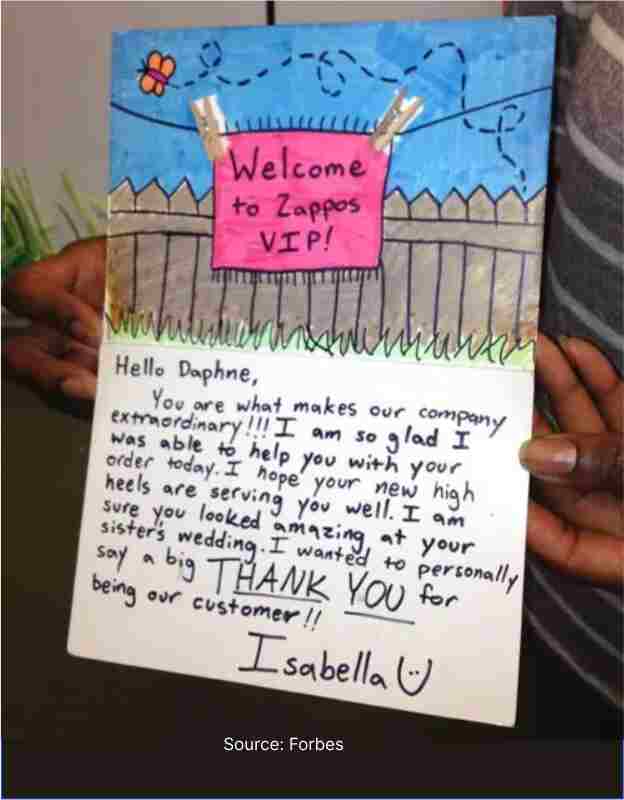 Welcome
to Zappos
VIP!
Hello Daphne,
You are what makes our company
extraordinary!!! I am so glad I
was able to help you with your
order today. I hope your new high
heels are serving you well. I am
sure you looked amazing at your
sister's wedding. I wanted to personally
say a big THANK YOU for
being our customer!!
Isabella
Source: Forbes